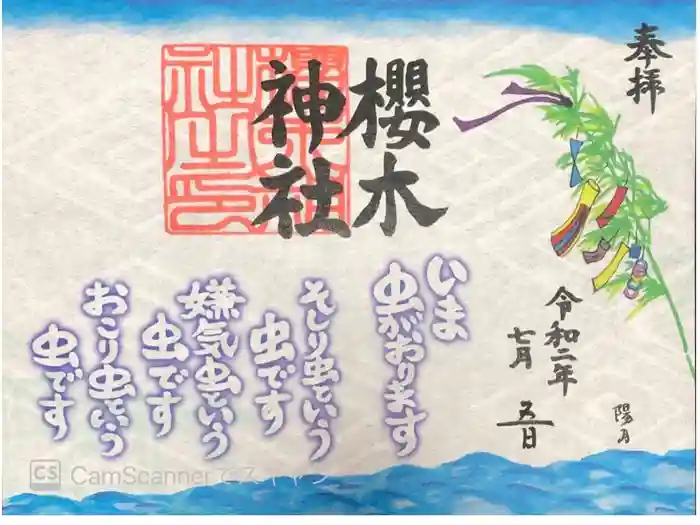 奉拝
櫻木
神社
令和二年
七月五日
陽月
いま
虫がおります
そしり虫という
虫です
嫌気虫という
虫です
おこり虫という
虫です
CS CamScannerでスキャン